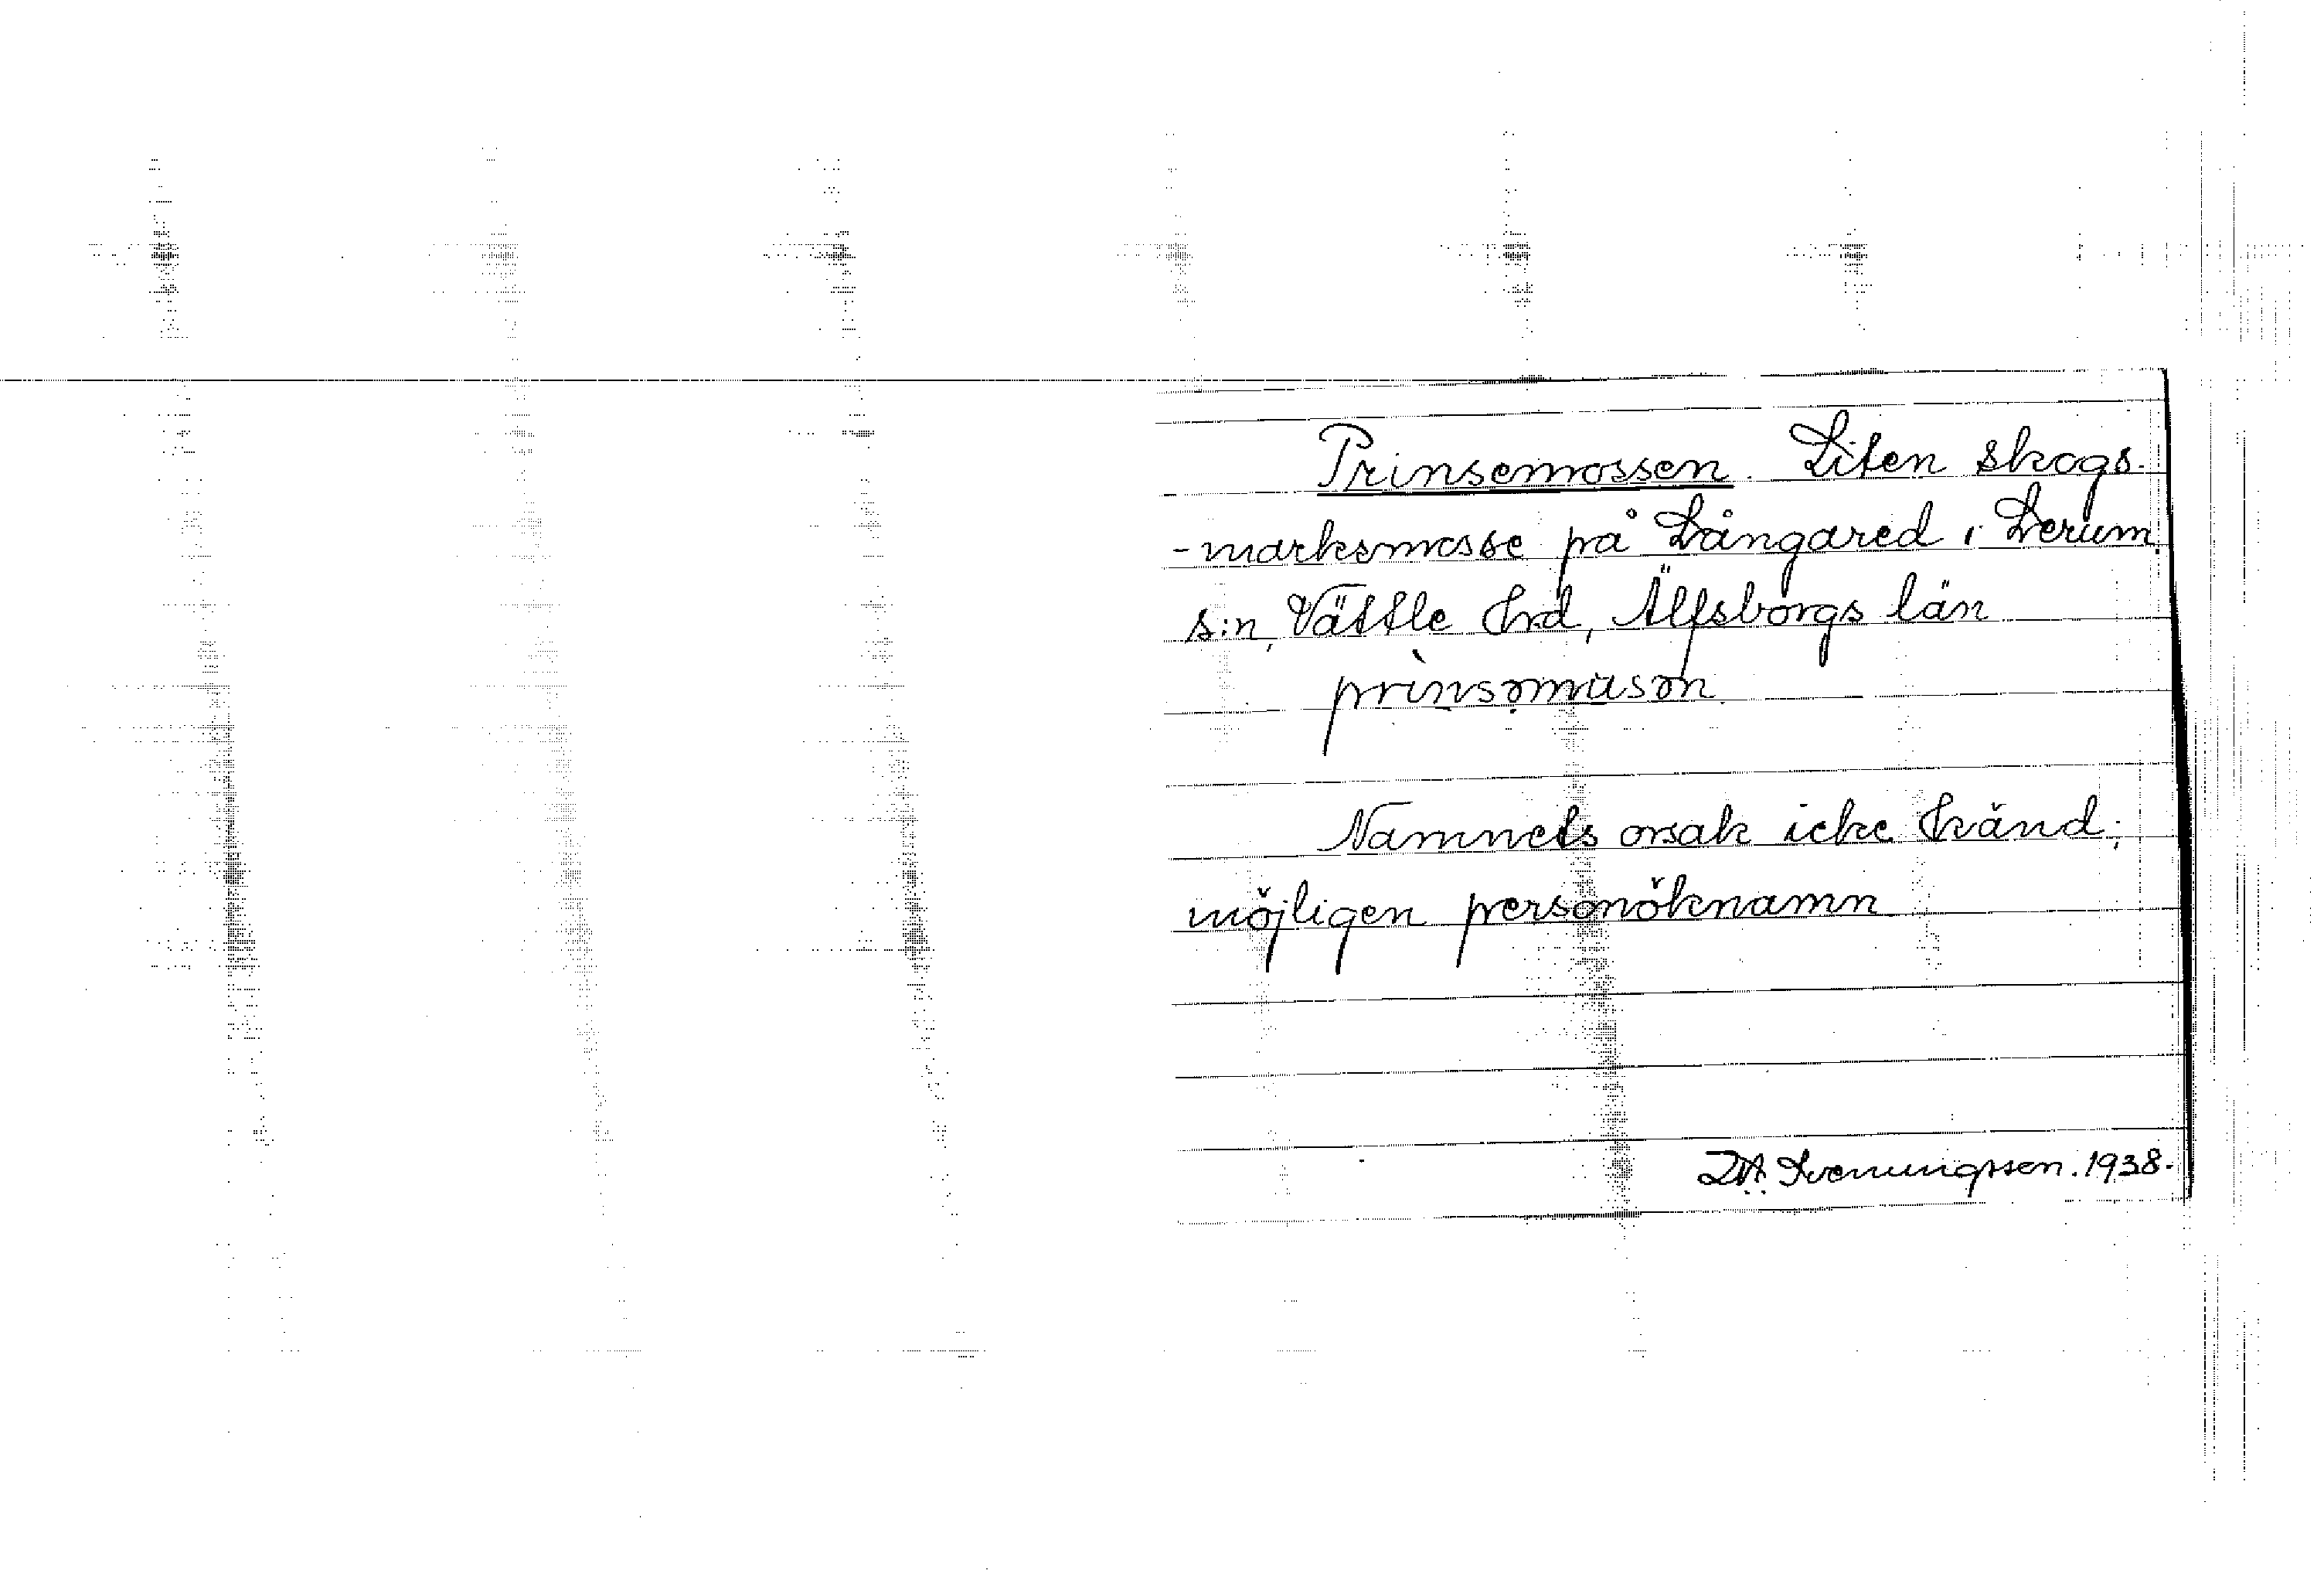 Prinsemossen. Liten skogs-
-marksmosse på Långared i Lerum
s:n, Vättle hrd, Älfsborgs län
prìnsəmusən
Namnets orsak icke känd;
möjligen personöknamn
1938.